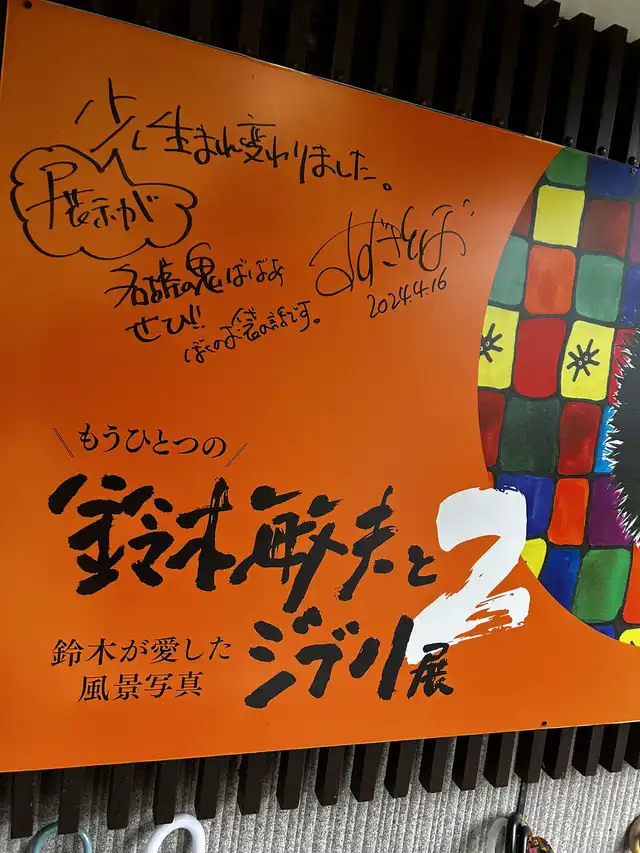 少し生まれ変わりました。
展示が
鬼ばばあ
ぜひ!!
ぼくのお袋の話です。
2024.4.16
もうひとつの
鈴木敏夫と
ジブリ展
2
鈴木が愛した
風景写真